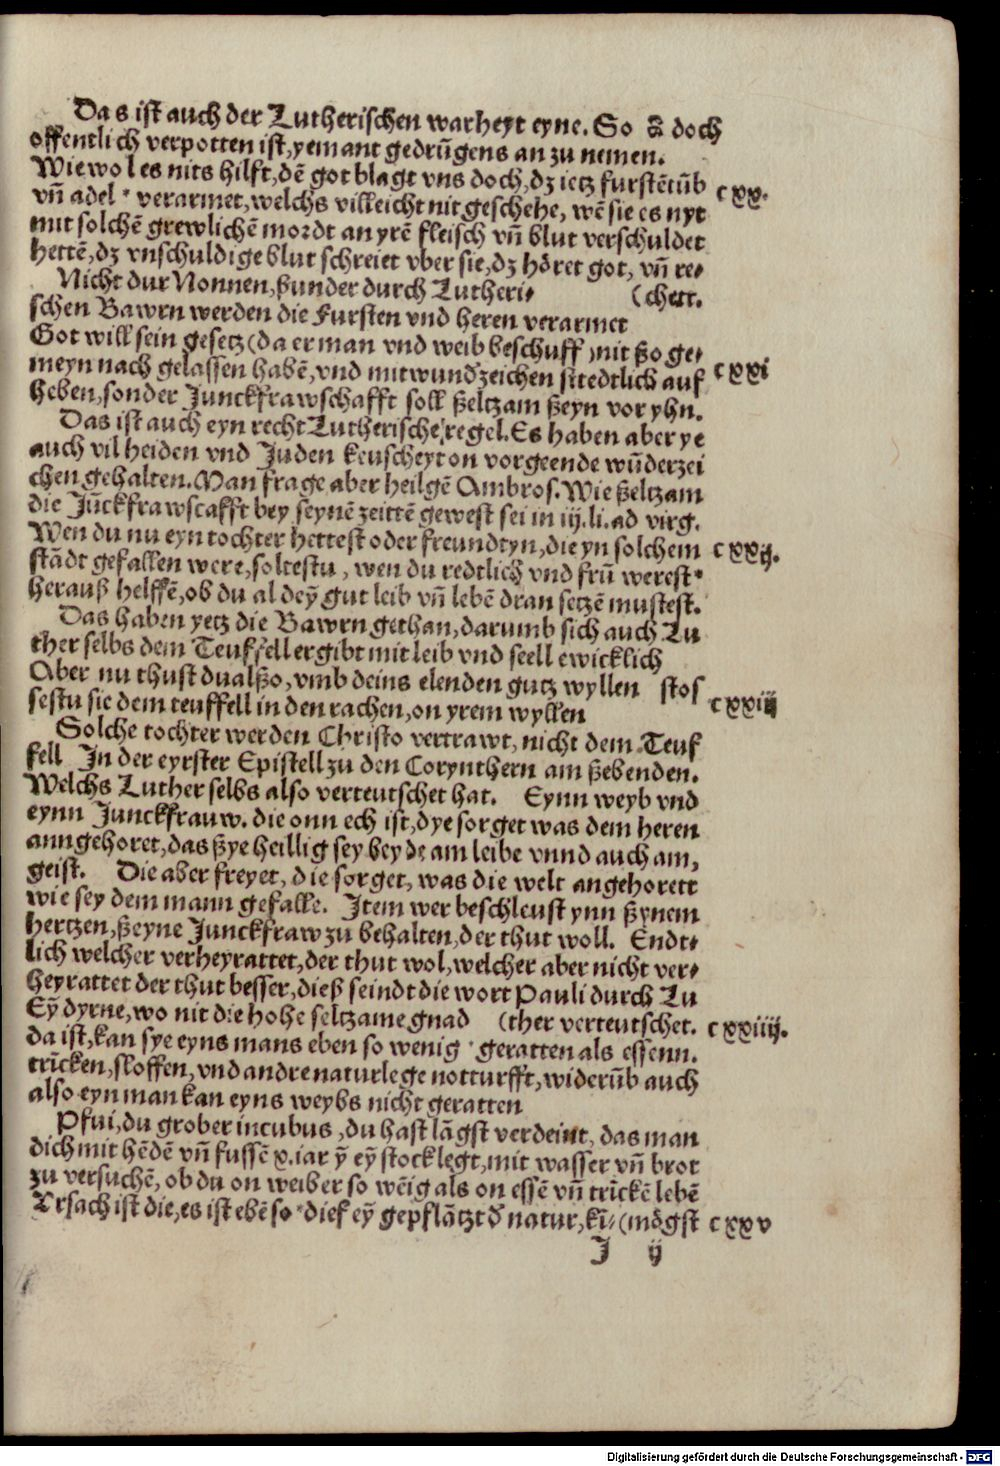 Das ist auch der Lutherischen warheyt eyne. So doch
offentlich verpotten ist, yemant gedrũgens an zu nemen.
Wiewol es nits hilft, dẽ got blagt vns doch, dz ietz furstẽtũb cxx.
vñ adel verarmet, welchs villeicht nit geschehe, wẽ sie es nyt
mit solchẽ grewlichẽ mordt an yrẽ fleisch vñ blut verschuldet
hettẽ, dz vnschuldige blut schreiet vber sie, dz höret got, vñ re⸗
Nicht dur Nonnen, ßunder durch Lutheri⸗ (chett.
schen Bawrn werden die Fursten vnd heren verarmet
Got will sein gesetz (da er man vnd weib beschuff) nit ßo ge⸗
meyn nach gelassen habẽ, vnd mit wundzeichen stedtlich auf cxxi
heben, sonder Junckfrawschafft soll ßeltzam ßeyn vor yhn.
Das ist auch eyn recht Lutherische regel. Es haben aber ye
auch vil heiden vnd Juden keuscheyt on vorgeende wũderzei
chen gehalten. Man frage aber heilgẽ Ambros. Wie ßeltzam
die Jũckfrawscafft bey seynẽ zeittẽ gewest sei in iij. li. ad virg.
Wen du nu eyn tochter hettest oder freundtyn, die yn solchem cxxij.
stãdt gefallen were, soltestu, wen du redtlich vnd frũ werest
herauß helffẽ, ob du al deỹ gut leib vñ lebẽ dran setzẽ mustest.
Das haben yetz die Bawrn gethan, darumb sich auch Lu
ther selbs dem Teuffell ergibt mit leib vnd seell ewicklich
Aber nu thust du alßo, vmb deins elenden gutz wyllen stos
sestu sie dem teuffell in den rachen, on yrem wyllen cxxiij
Solche tochter werden Christo vertrawt, nicht dem Teuf
fell In der eyrster Epistell zu den Corynthern am ßebenden.
Welchs Luther selbs also verteutschet hat. Eynn weyb vnd
eynn Junckfrauw. die onn ech ist, dye sorget was dem heren
anngehoret, das ßye heillig sey beyde am leibe vnnd auch am,
geist. Die aber freyet, die sorget, was die welt angehorett
wie sey dem mann gefalle. Item wer beschleust ynn ßynem
hertzen, ßeyne Junckfraw zu behalten, der thut woll. Endt⸗
lich welcher verheyrattet, der thut wol, welcher aber nicht ver⸗
heyrattet der thut besser, dieß seindt die wort Pauli durch Lu
Eỹ dyrne, wo nit die hohe seltzame gnad (ther verteutschet. cxxiiij.
da ist, kan sye eyns mans eben so wenig geratten als essenn.
trĩcken, sloffen, vnd andre naturlege notturfft, widerũb auch
also eyn man kan eyns weybs nicht geratten
Pfui, du grober incubus, du hast lãgst verdeint, das man
dich mit hẽdẽ vñ fussẽ x. iar ỹ eỹ stock legt, mit wasser vñ brot
zu versuchẽ, ob du on weiber so wẽig als on essẽ vñ trĩckẽ lebẽ
Vrsach ist die, es ist ebẽ so dief eỹ gepflãtzt d̃ natur, kĩ⸗ (mögst cxxv
J ij
Digitalisierung gefördert durch die Deutsche Forschungsgemeinschaft - DFG